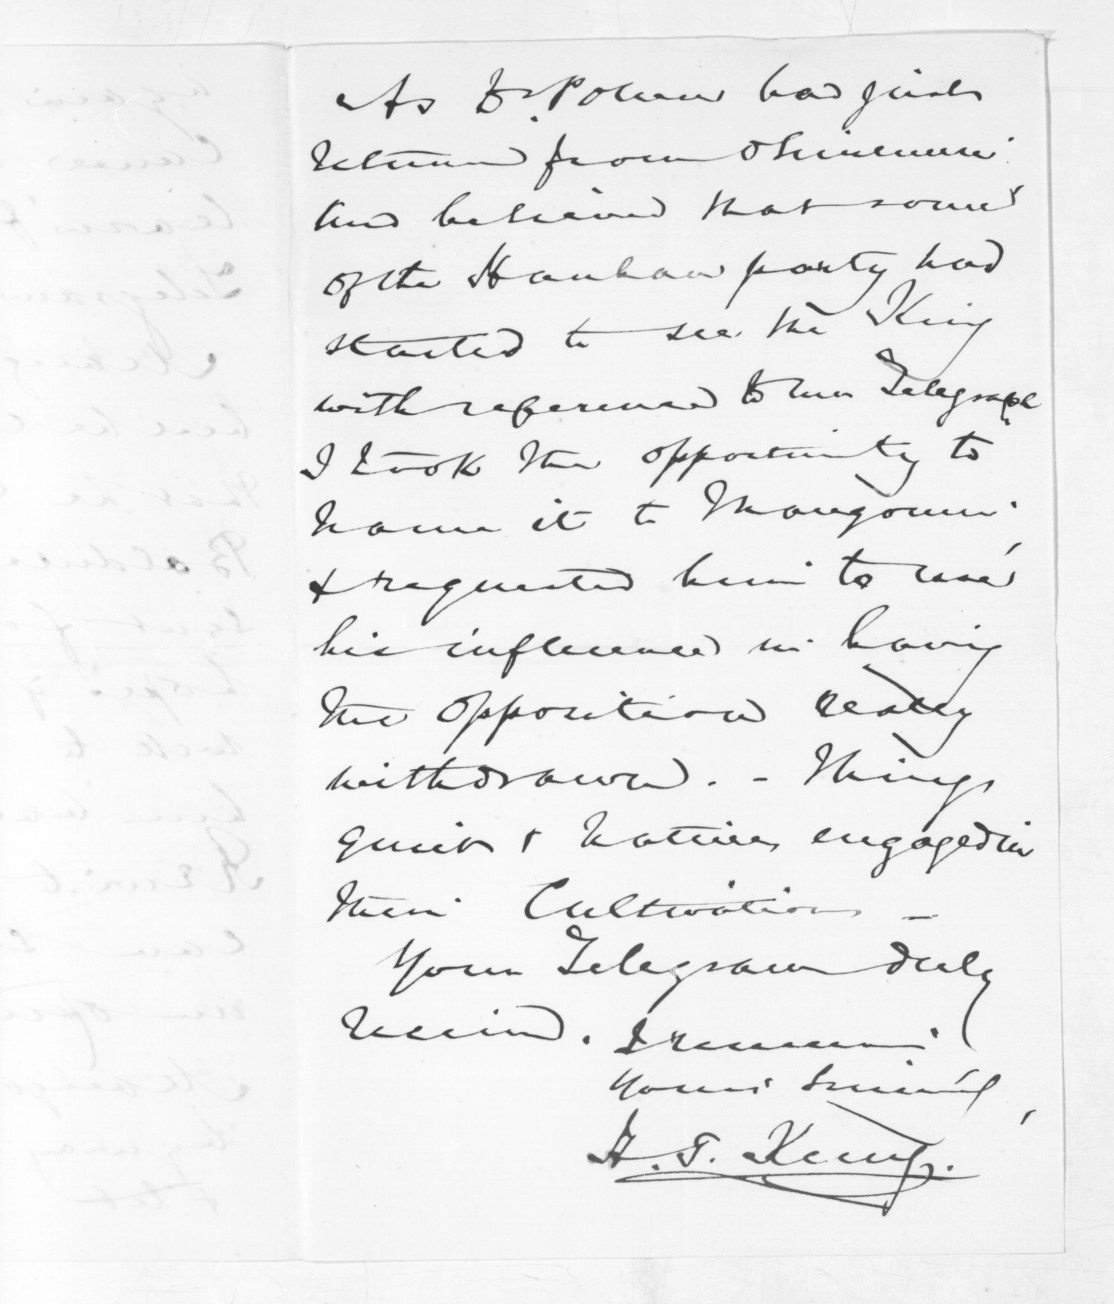 As Dr. Pollen had just
return from Ohinemuri
and believed that some
of the Hauhau party had
started to see the King
with reference to our Telegraph
I took the opportunity to
name it to
& requested him to use
his influence in having
the opposition really
withdrawn. - Things
quiet & Natives engaged in
their Cultivations -
Your Telegram duly
received. I remain
Yours Sincerely
H. T. Kemp.